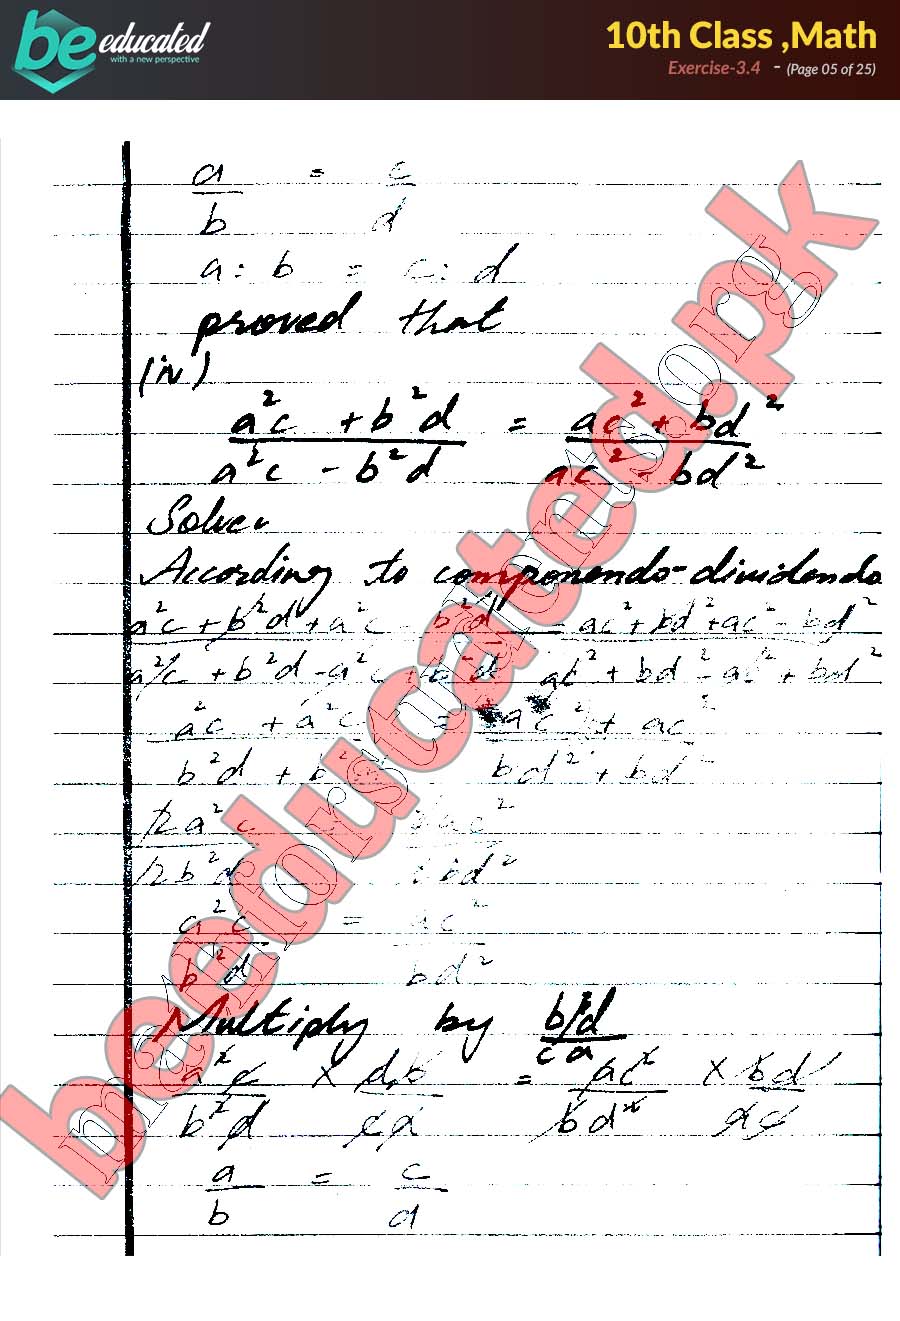 be educated
with a new perspective
10th Class ,Math
Exercise-3.4 - (Page 05 of 25)
a/b = c/d
a : b = c : d
proved that
(iv)
(a²c + b²d)/(a²c - b²d) = (ac² + bd²)/(ac² - bd²)
According to componendo-dividendo
(a²c + b²d + a²c - b²d)/(a²c + b²d - a²c + b²d) = (ac² + bd² + ac² - bd²)/(ac² + bd² - ac² + bd²)
(a²c + a²c)/(b²d + b²d) = (ac² + ac²)/(bd² + bd²)
2a²c/2b²d = 2ac²/2bd²
a²c/b²d = ac²/bd²
Multiply by bd/ca
a²c/b²d × d.b/ca = ac²/bd² × bd/ac
a/b = c/d
beeducated.pk